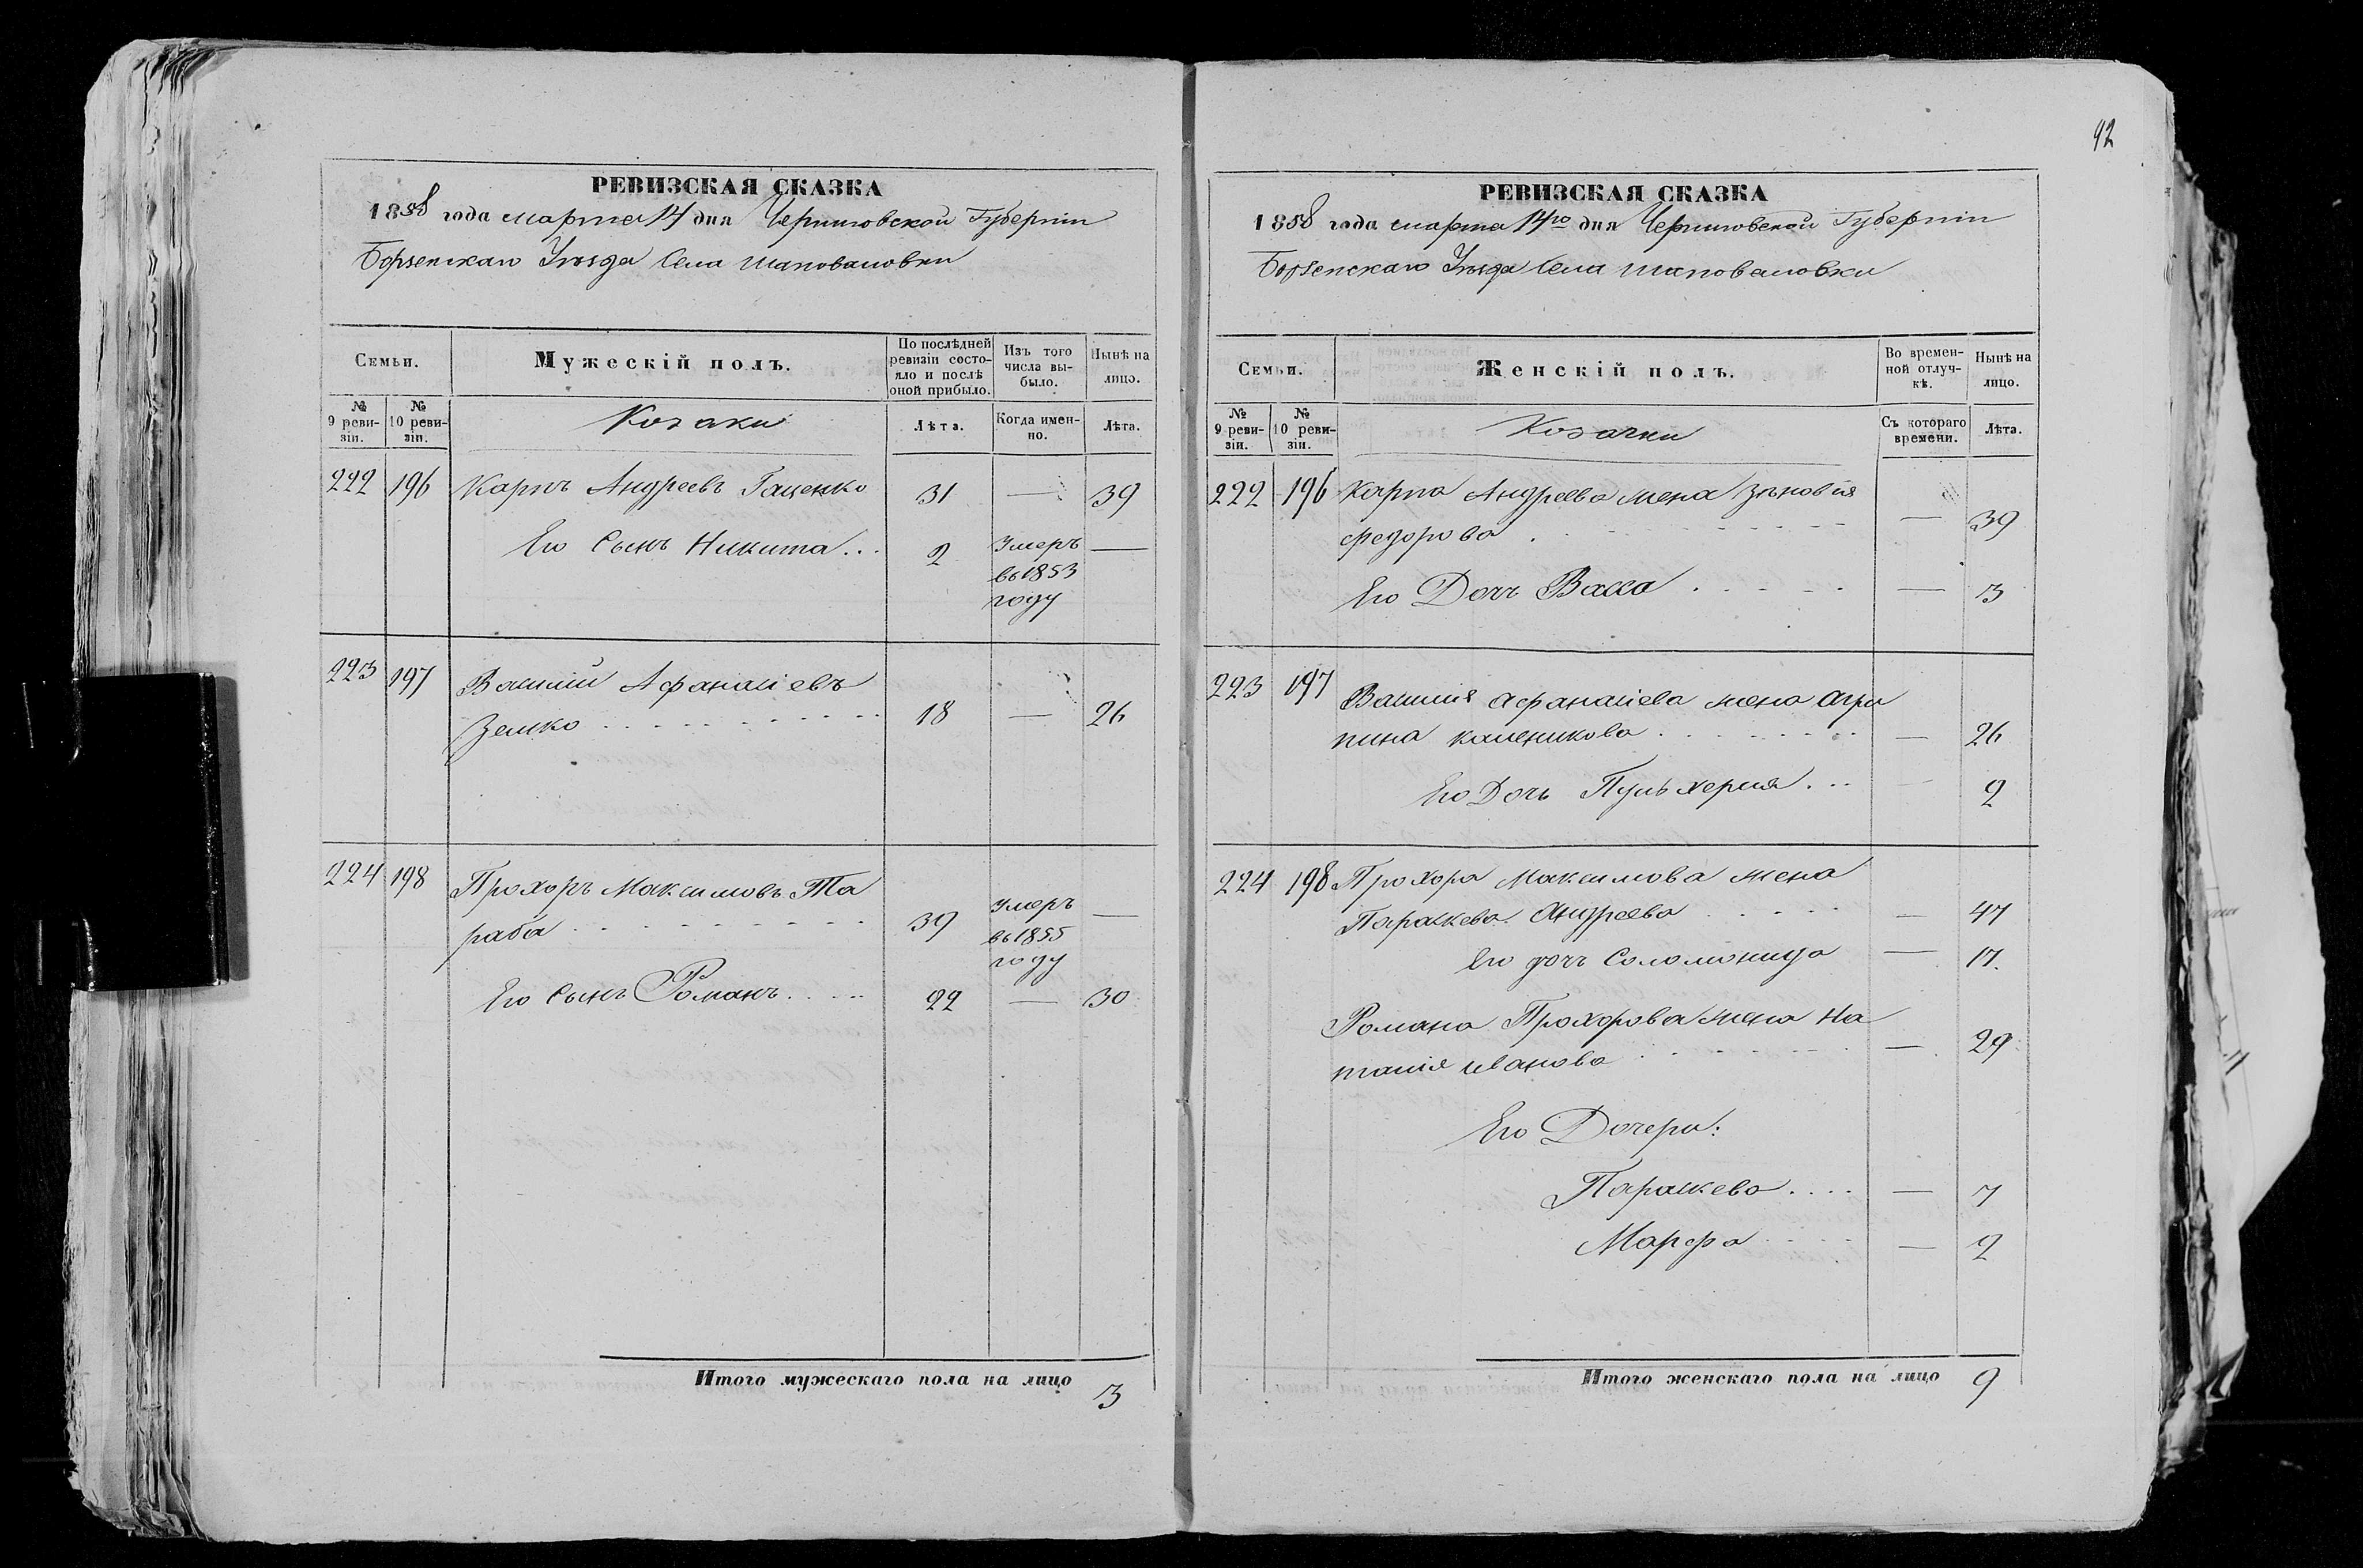 РЕВИЗСКАЯ СКАЗКА
1858 года марта 14 дня Черниговской Губерніи
Борзенскаго Уѣзда Села Шаповаловки
Семьи.
Мужескій полъ.
По послѣдней ревизіи состояло и послѣ оной прибыло.
Изъ того числа выбыло.
Нынѣ на лицо.
№ 9 ревизіи.
№ 10 ревизіи.
Козаки
Лѣта.
Когда именно.
Лѣта.
222 196 Карпъ Андреевъ Гаценко 31 — 39
Его Сынъ Никита... 2 Умеръ —
въ 1853
году
223 197 Василій Афанасіевъ
Земко 18 — 26
224 198 Прохоръ Максимовъ Та
раба 39 Умеръ —
въ 1855
году
Его Сынъ Романъ.... 22 — 30
Итого мужескаго пола на лицо 3
92
РЕВИЗСКАЯ СКАЗКА
1858 года марта 14го дня Черниговской Губерніи
Борзенскаго Уѣзда Села Шаповаловки
Семьи.
Женскій полъ.
Во временной отлучкѣ.
Нынѣ на лицо.
№ 9 ревизіи.
№ 10 ревизіи.
Козачки
Съ котораго времени.
Лѣта.
222 196 Карпа Андреева жена Зѣновія
федорова — 39
Его Дочь Васса — 3
223 197 Василія Афанасіева жена Агри
пина каленикова — 26
Его Дочь Пульхерия... — 2
224 198 Прохора Максимова жена
Параскева Андреева — 47
Его дочь Соломонида — 17.
Романа Прохорова жена На
талія иванова — 29
Его Дочери:
Параскева.... — 7
Марфа — 2
Итого женскаго пола на лицо 9